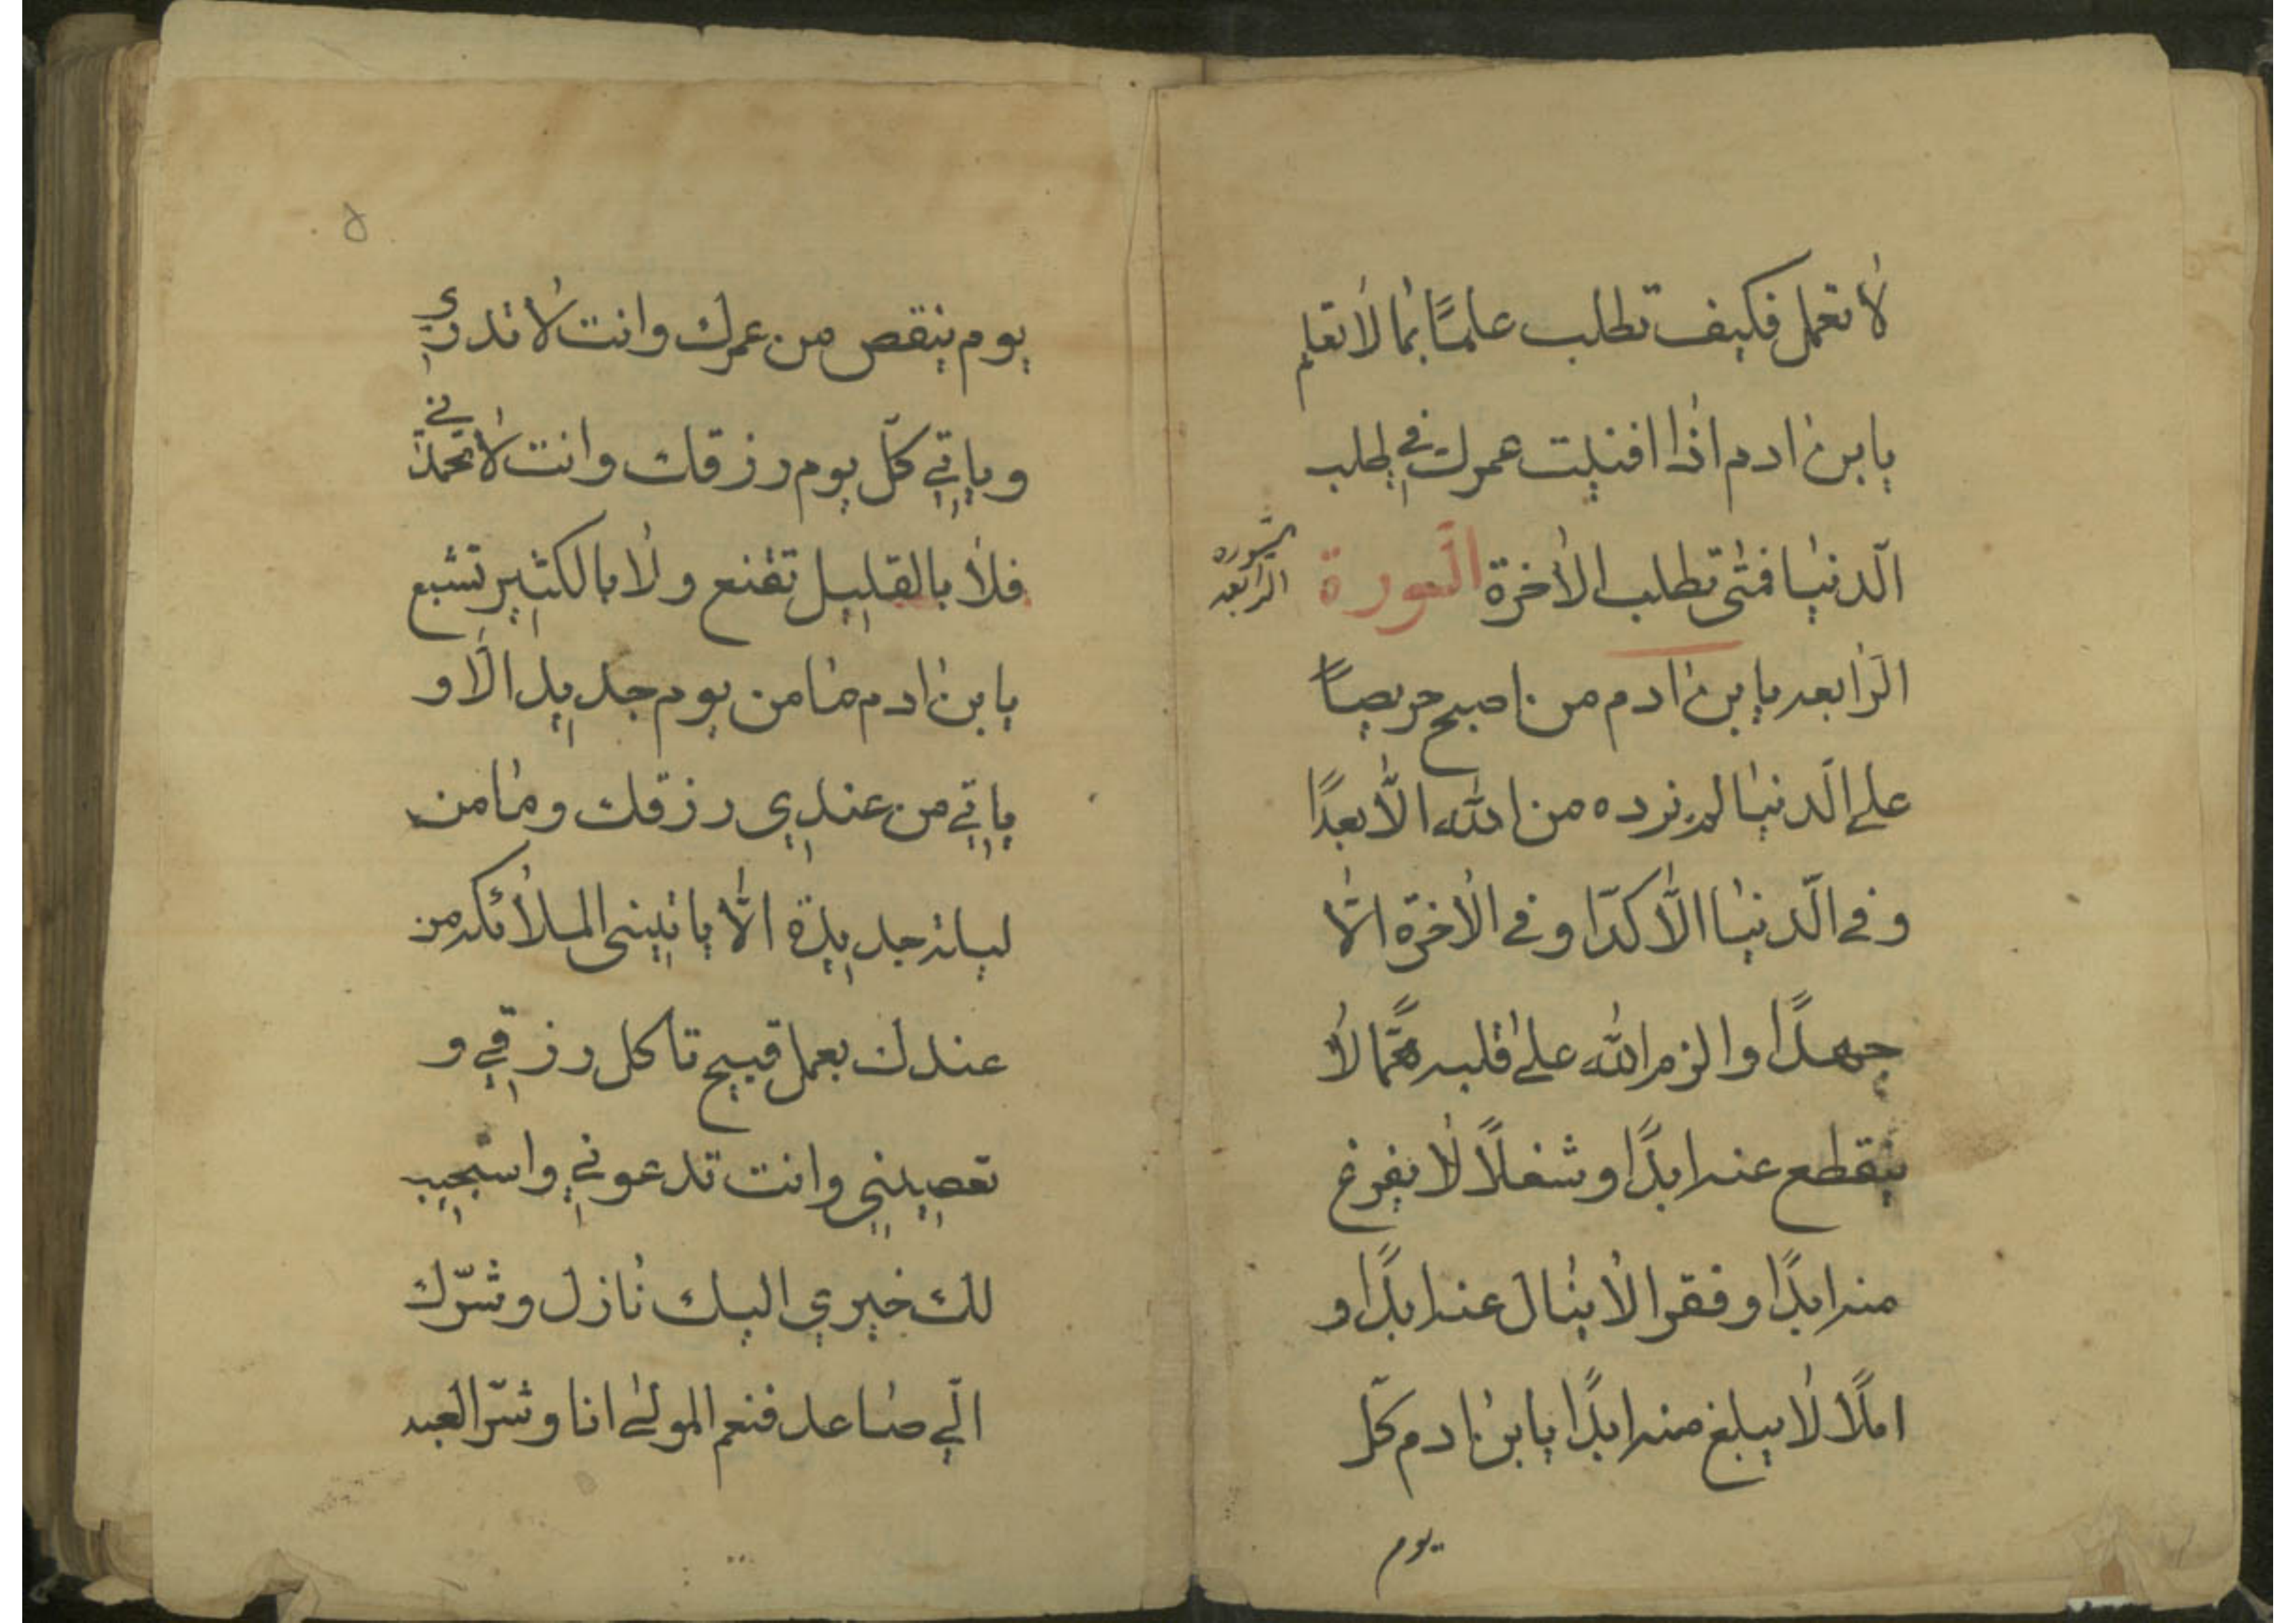 لا تعمل فكيف تطلب علمًا بما لا تعلم
يا بن ادم اذا افنيت عمرك في طلب
الدّنيا فمتى تطلب الاخرة السّورة
السّوره
الرابعه
الرّابعه يا بن ادم من اصبح حريصًا
على الدّنيا لم نزده من الله الّا بعدًا
و في الدّنيا الّا كدّا و في الاخرة الّا
جهدًا و الزم الله على قلبه همًّا لا
ينقطع عنه ابدًا و شغلًا لا يفرغ
منه ابدًا و فقرا لا ينال عنه ابدًا و
املًا لا يبلغ منه ابدًا يا بن ادم كلّ
يوم
۵
يوم ينقص من عمرك و انت لا تدري
و ياتي كلّ يوم رزقك و انت لا تحمدني
فلا بالقليل تقنع و لا بالكثير تشبع
يا بن ادم ما من يوم جديد الّا و
ياتي من عندي رزقك و ما من
ليلة جديدة الّا ياتيني الملائكه من
عندك بعمل قبيح تاكل رزقي و
تعصيني و انت تدعوني و استجيب
لك خيري اليك نازل و شرّك
الّي صاعد فنعم المولى انا و شرّ العبد